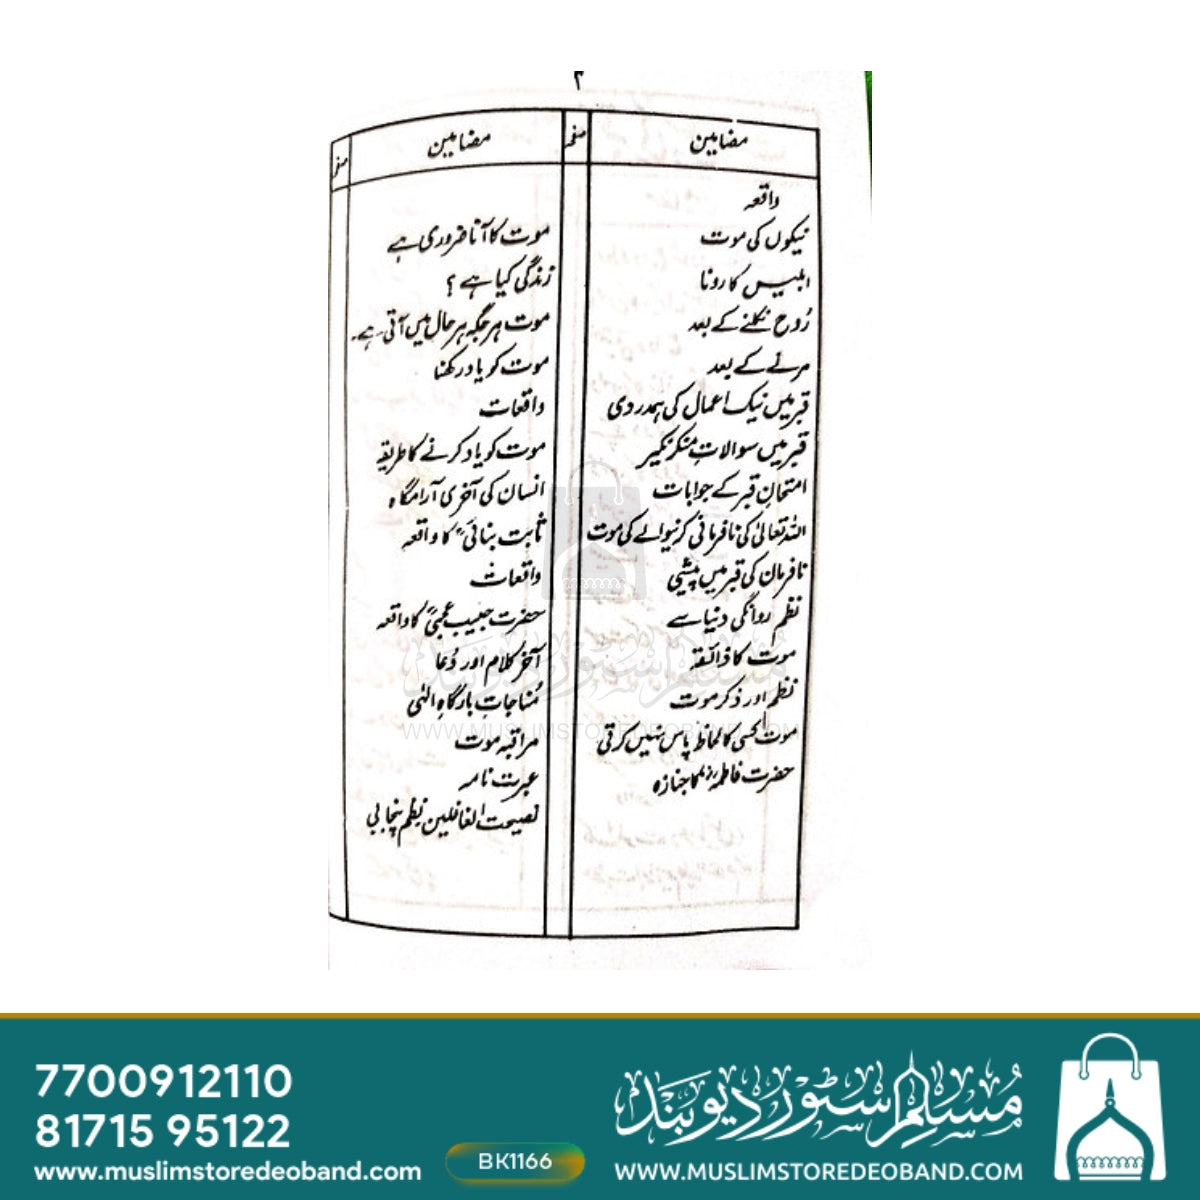 ۲
مضامین
صفحہ
واقعہ
نیکوں کی موت
ابلیس کا رونا
رُوح نکلنے کے بعد
مرنے کے بعد
قبر میں نیک اعمال کی ہمدردی
قبر میں سوالاتِ منکر نکیر
امتحانِ قبر کے جوابات
اللہ تعالیٰ کی نافرمانی کرنیوالے کی موت
نافرمان کی قبر میں پیشی
نظم روانگی دنیا سے
موت کا ذائقہ
نظم اور ذکر موت
موت کسی کا لحاظ پاس نہیں کرتی
حضرت فاطمہؓ کا جنازہ
مضامین
صفحہ
موت کا آنا ضروری ہے
زندگی کیا ہے ؟
موت ہر جگہ ہر حال میں آتی ہے۔
موت کو یاد رکھنا
واقعات
موت کو یاد کرنے کا طریقہ
انسان کی آخری آرامگاہ
ثابت بنائیؒ کا واقعہ
واقعات
حضرت حبیب عجمیؒ کا واقعہ
آخر کلام اور دُعا
مُناجات بارگاہِ الٰہی
مراقبہ موت
عبرت نامہ
نصیحت الغافلین نظم پنجابی
مسلم سٹور دیوبند
WWW.MUSLIMSTOREDEOBAND.COM
7700912110
81715 95122
www.muslimstoredeoband.com
BK1166
مُسلم سٹور دیوبند
WWW.MUSLIMSTOREDEOBAND.COM